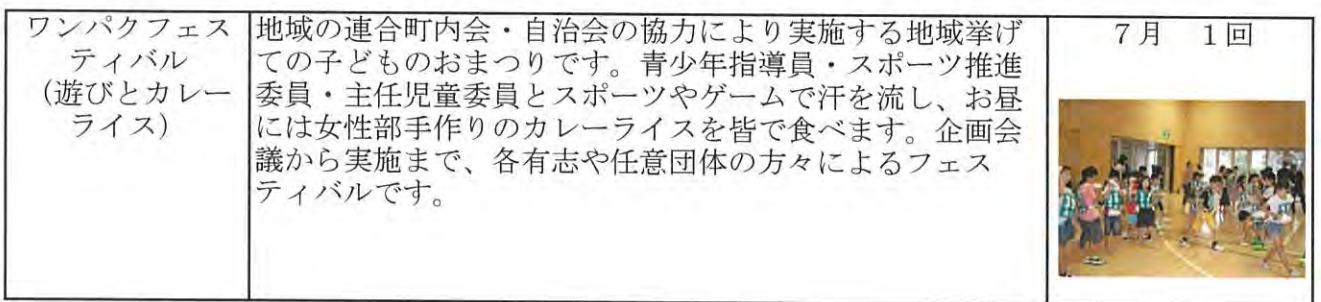 ワンパクフェス
ティバル
(遊びとカレー
ライス)
地域の連合町内会・自治会の協力により実施する地域挙げ
ての子どものおまつりです。青少年指導員・スポーツ推進
委員・主任児童委員とスポーツやゲームで汗を流し、お昼
には女性部手作りのカレーライスを皆で食べます。企画会
議から実施まで、各有志や任意団体の方々によるフェス
ティバルです。
7月 1回